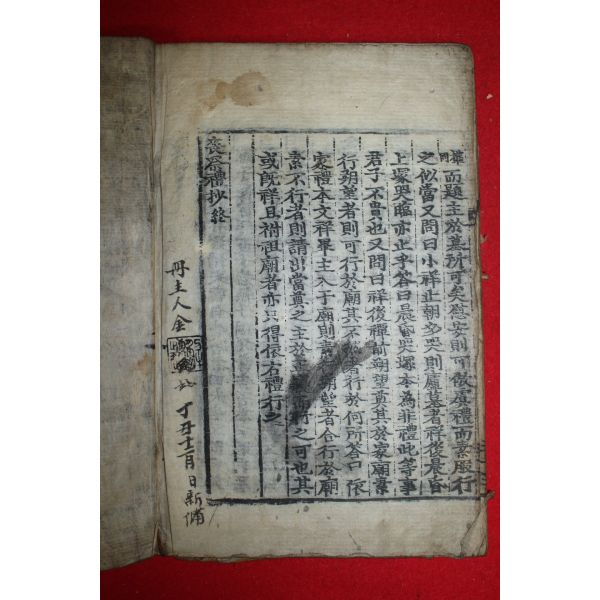 而題主於墓所可矣慰安則可倣虞禮而素服行
之似當又問曰小祥止朝夕哭則廬墓者祥後晨昏
上塚哭臨亦止乎答曰晨昏哭塚本為非禮此等事
君子不貴也又問曰祥後禫前朔望奠其於家廟素
行朔望者則可行於廟其不者行於何所答曰依
家禮本文祥畢主入于廟則素朔望者合行於廟
素不行者則請出當奠之主於行之可也其
或既祥且祔祖廟者亦只得依右禮行之
喪祭禮抄終
冊主人金
丁丑十二月日新備